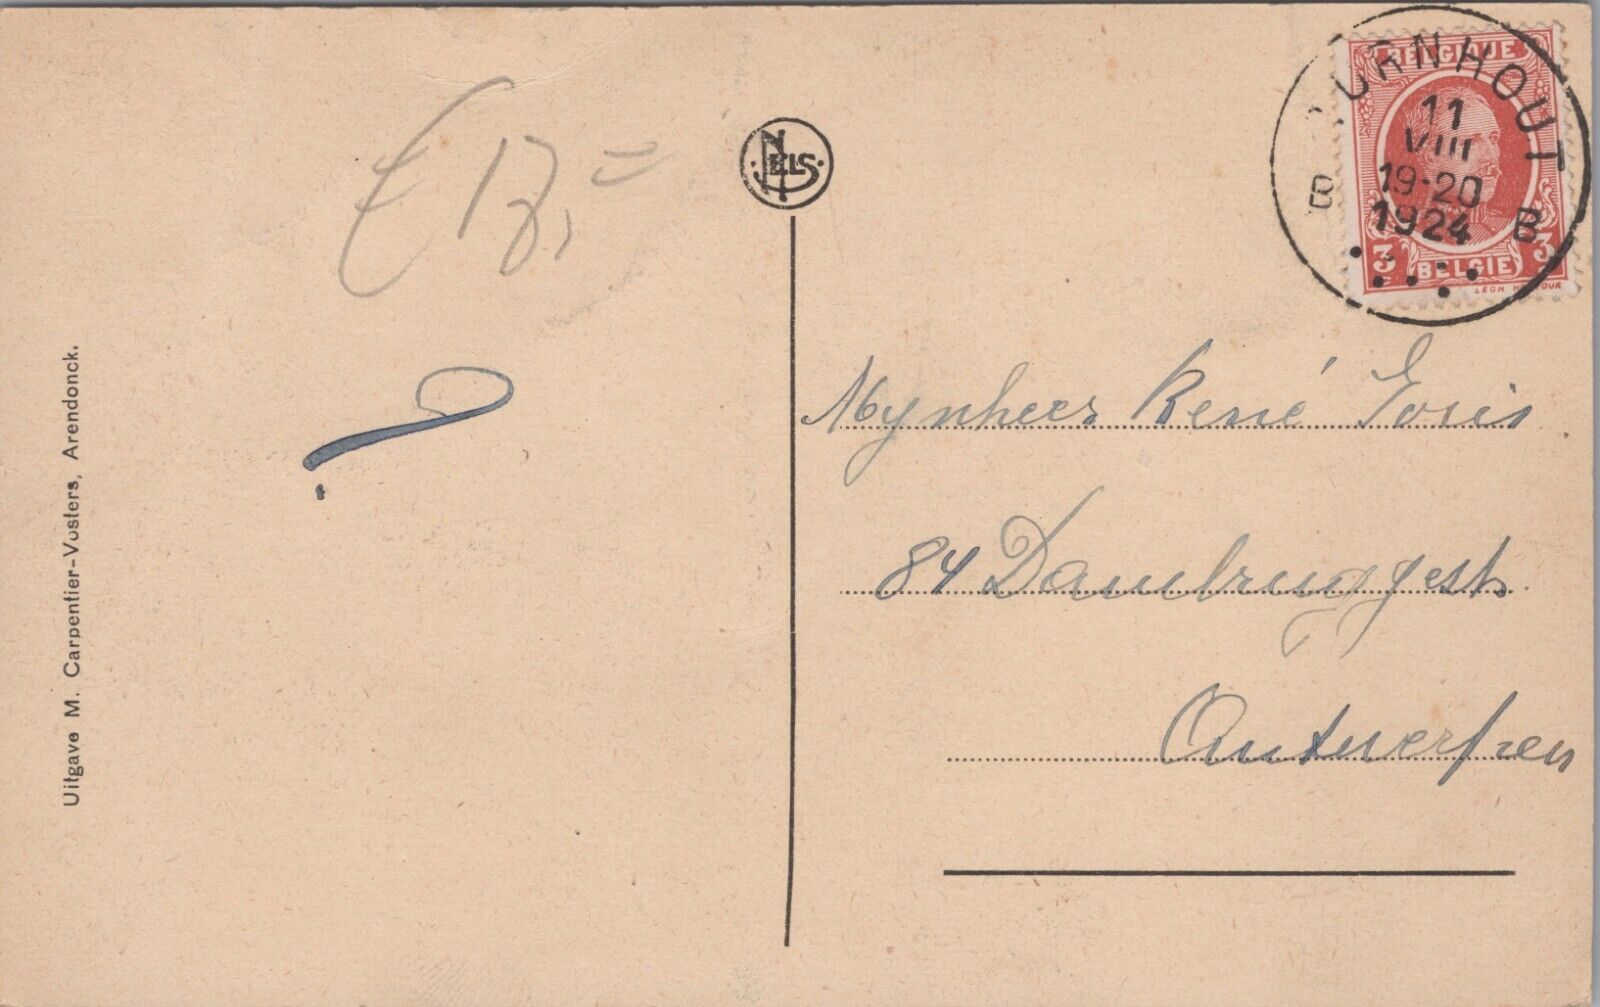 Uitgave M. Carpentier-Vosters, Arendonck.
€ 13,=
NELS
TURNHOUT
B B
11
VIII
19-20
1924
BELGIQUE
3 BELGIE 3
Mynheer René Goris
84 Dambruggestr.
Antwerpen